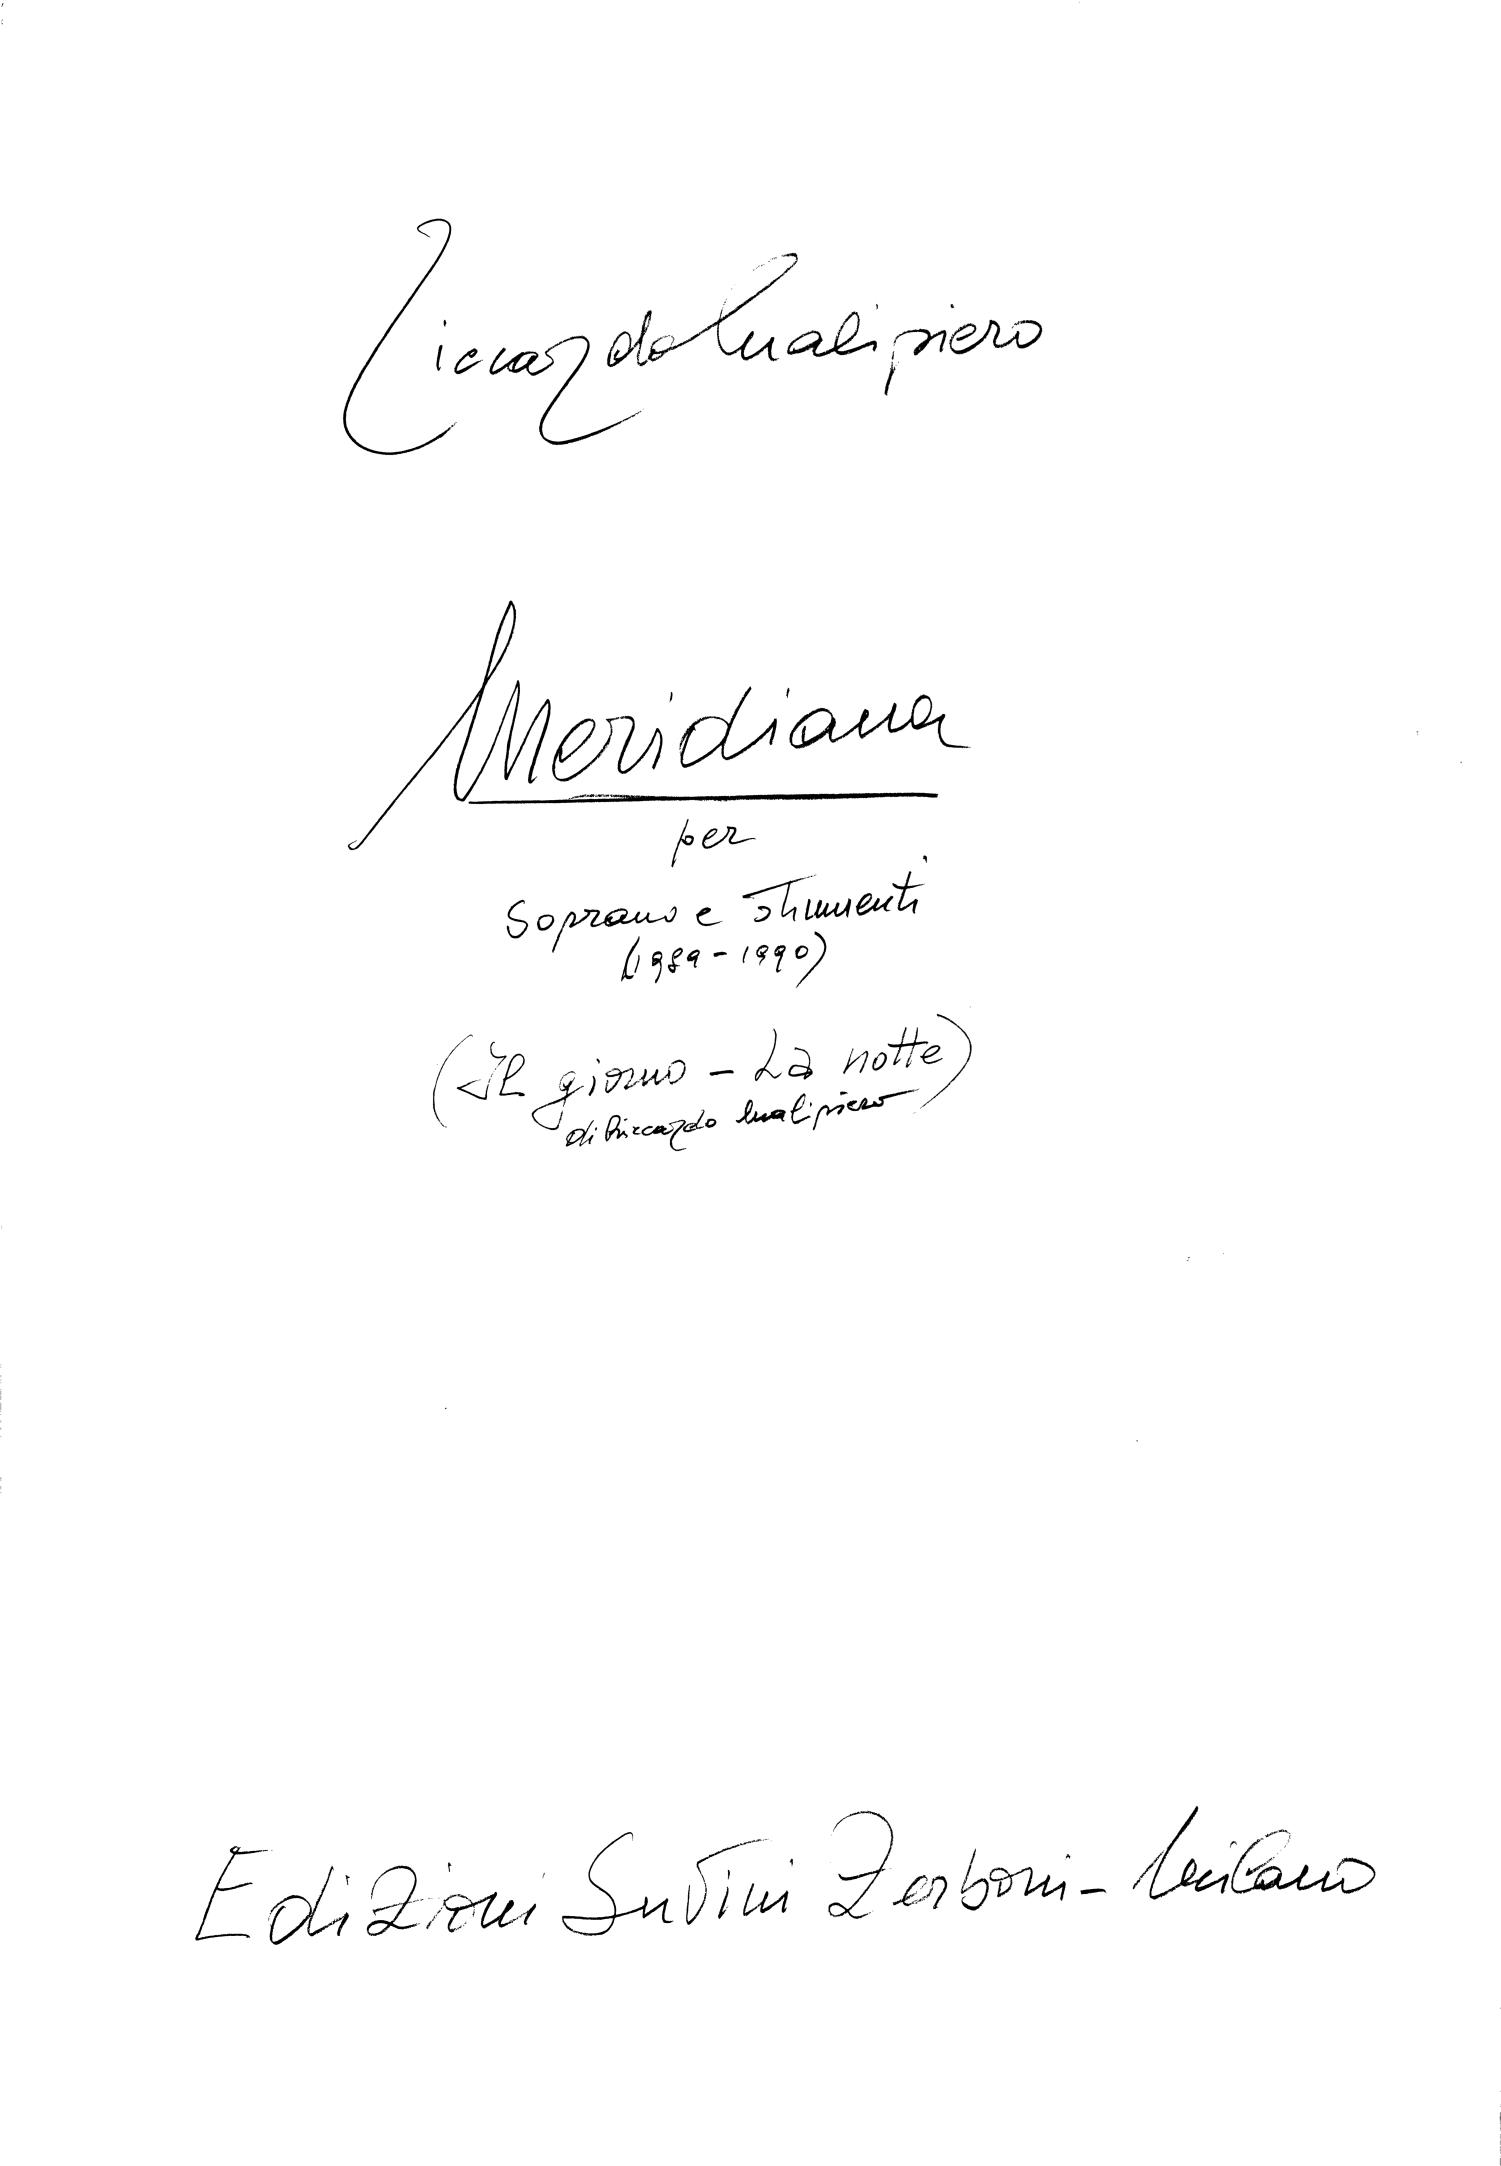 Riccardo Malipiero
Meridiana
per
Soprano e strumenti
(1989-1990)
(Il giorno - La notte)
di Riccardo Malipiero
Edizioni Suvini Zerboni - Milano